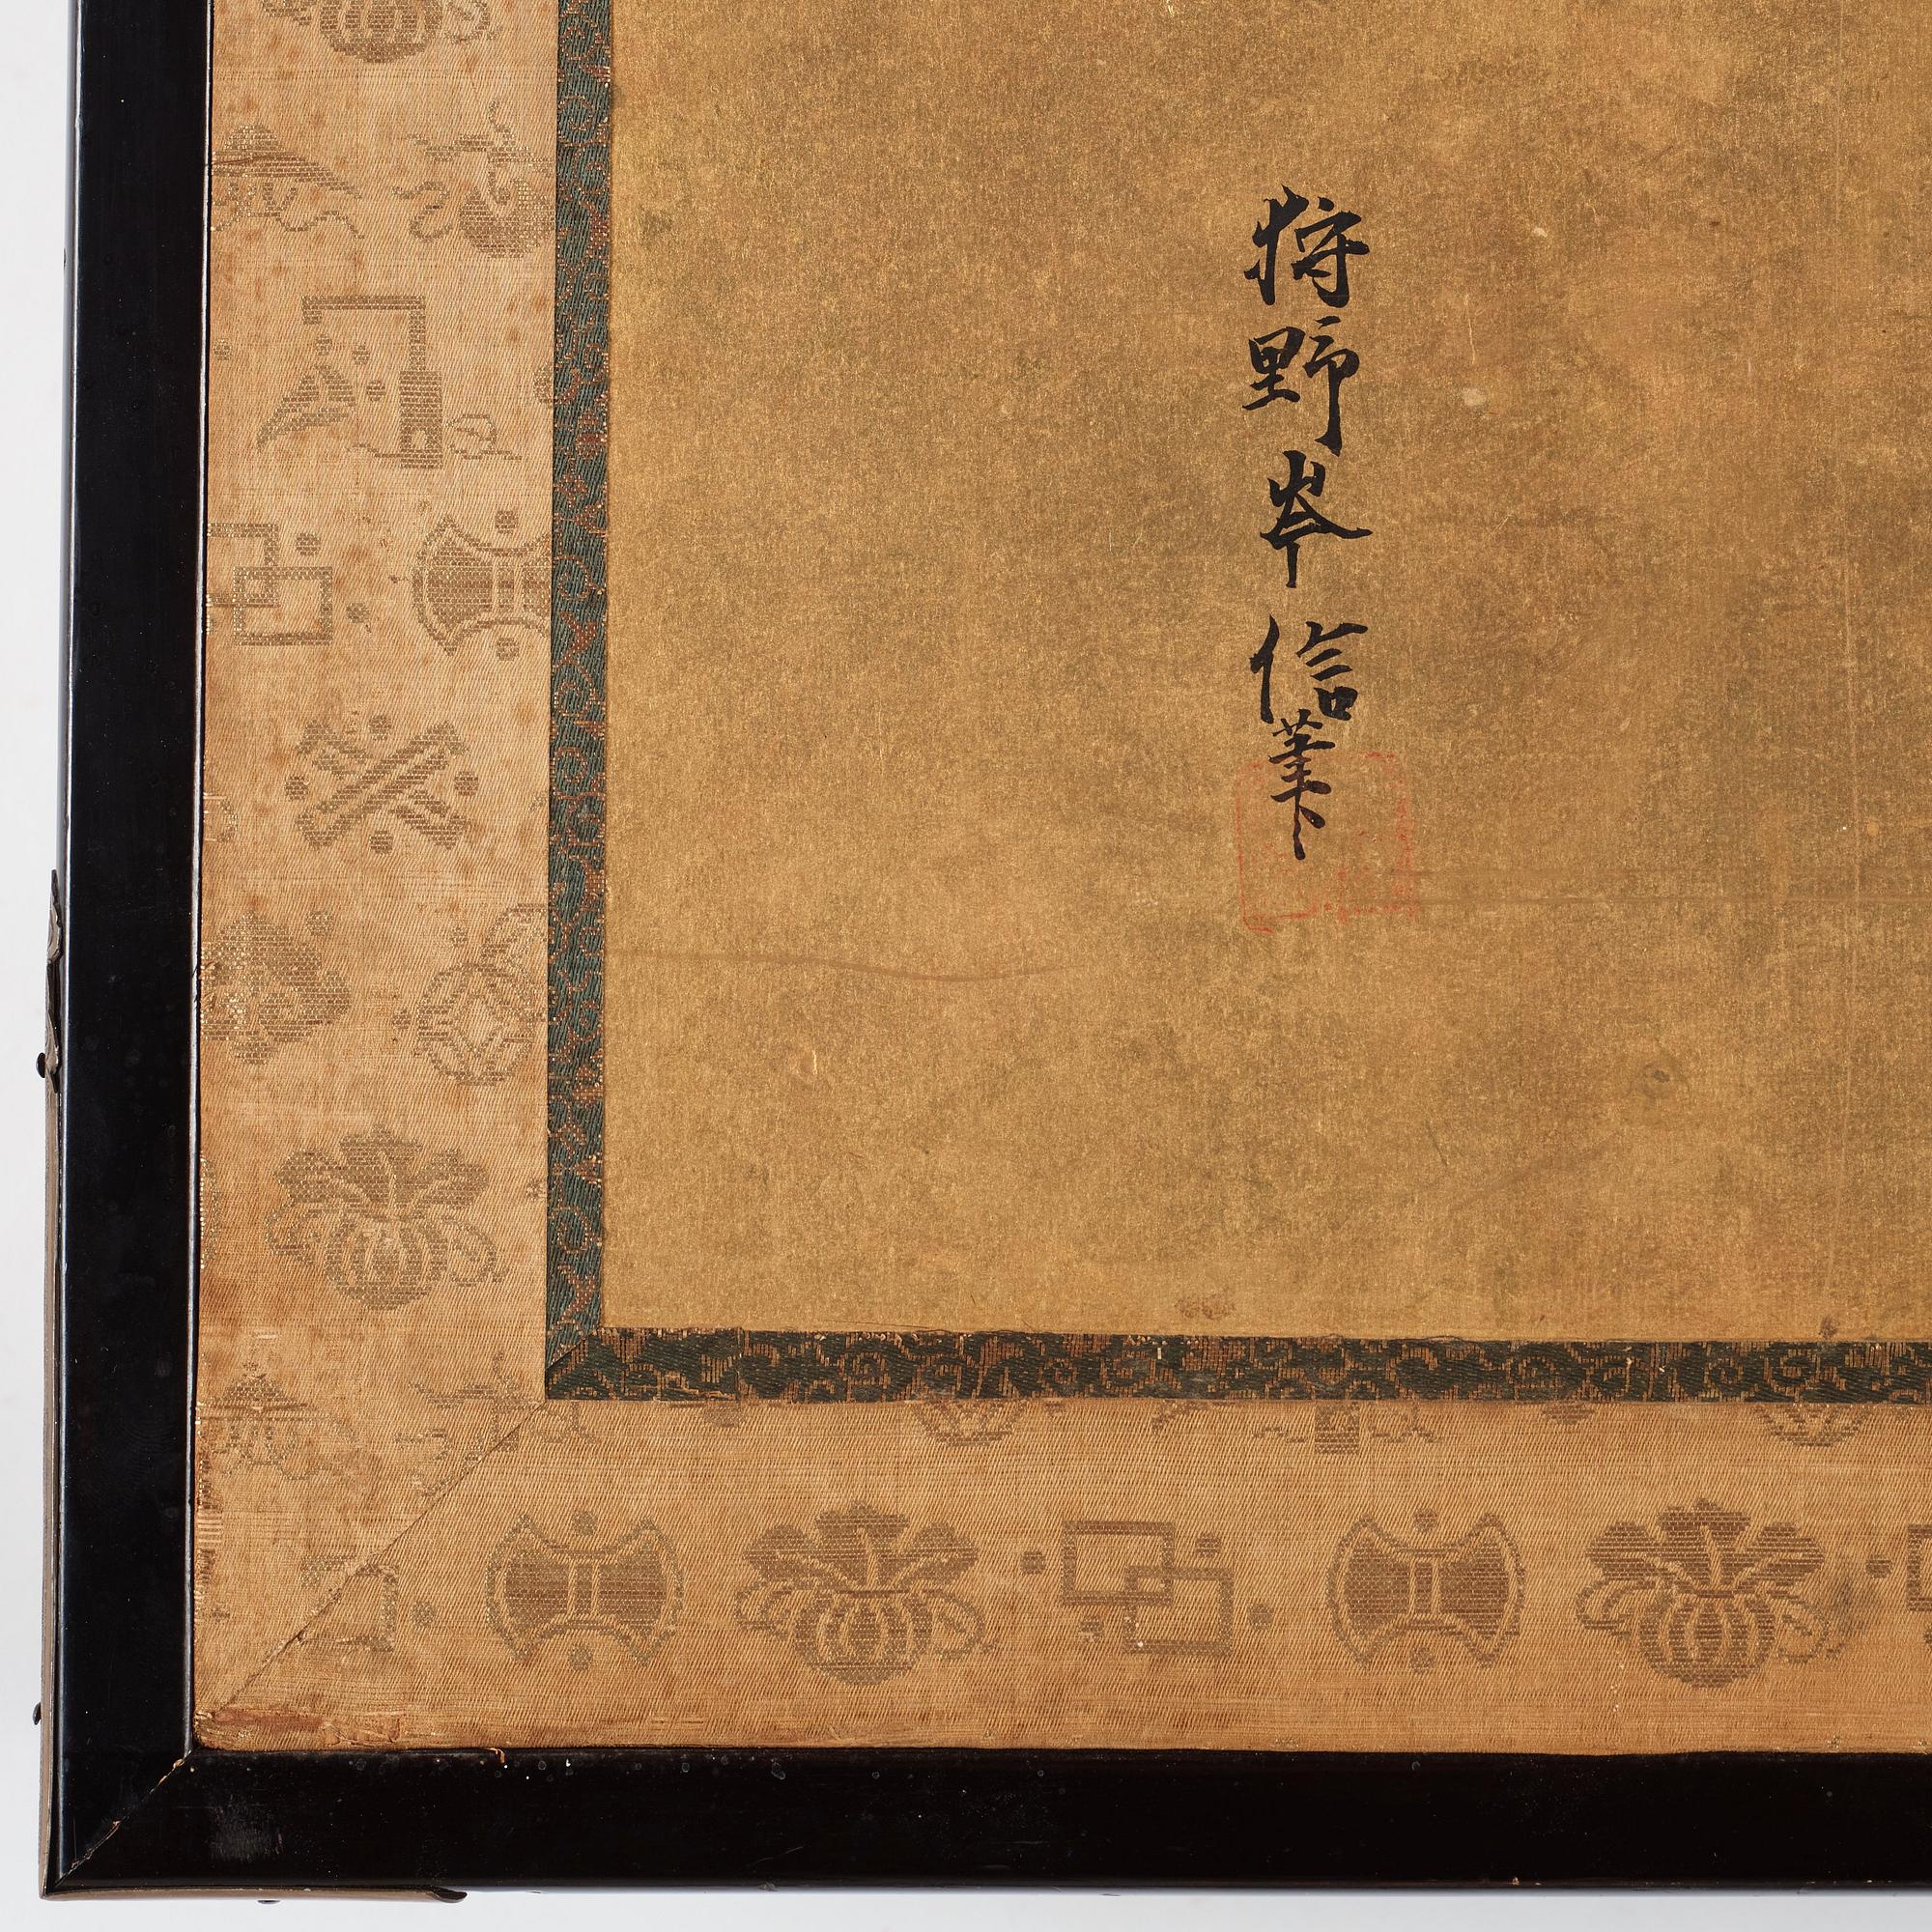 狩野岑信筆